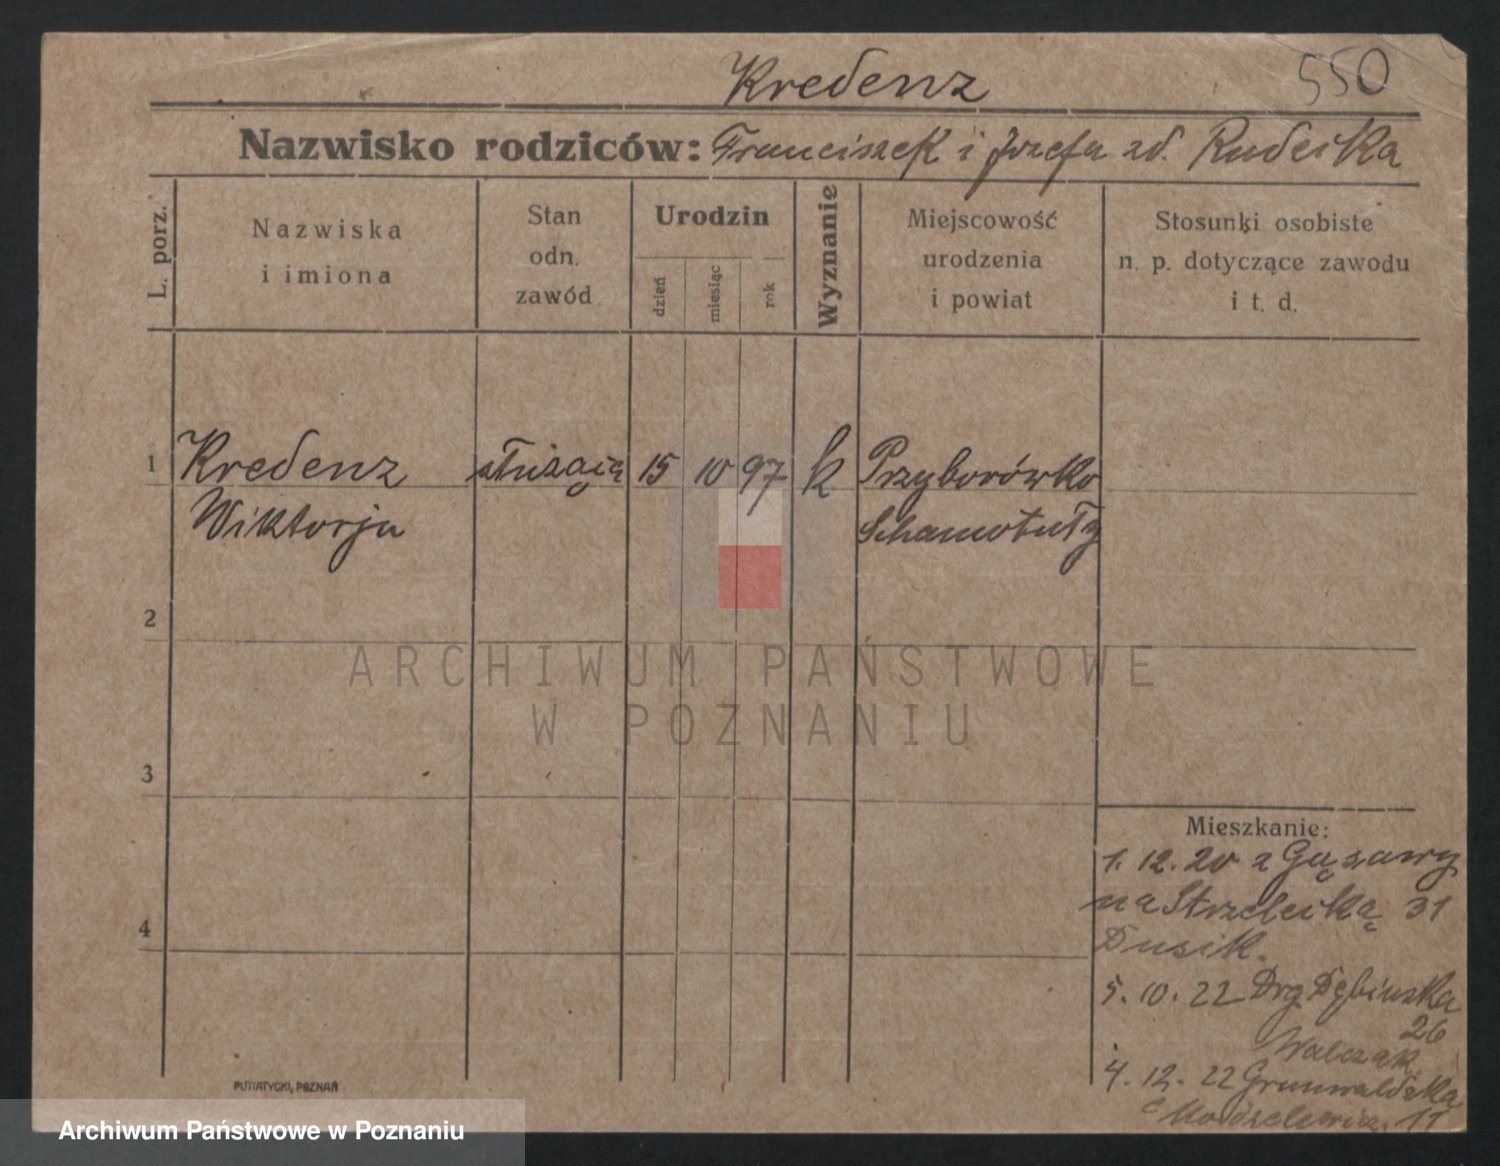 Kredenz
550
Nazwisko rodziców: Franciszek i Józefa zd. Rudecka
L. porz.
Nazwiska
i imiona
Stan
odn.
zawód
Urodzin
dzień
miesiąc
rok
Wyznanie
Miejscowość
urodzenia
i powiat
Stosunki osobiste
n. p. dotyczące zawodu
i t. d.
1 Kredenz służąca 15 10 97 k Przyborówko
Wiktorja Schamotuły
2
ARCHIWUM PAŃSTWOWE
W POZNANIU
3
Mieszkanie:
1. 12. 20 z Gąsawy
na Strzelecką 31
Dusik.
4
5. 10. 22 Drg Dębińska
26
Walczak
4. 12. 22 Grunwaldzka
11
PUTIATYCKI, POZNAŃ
Archiwum Państwowe w Poznaniu